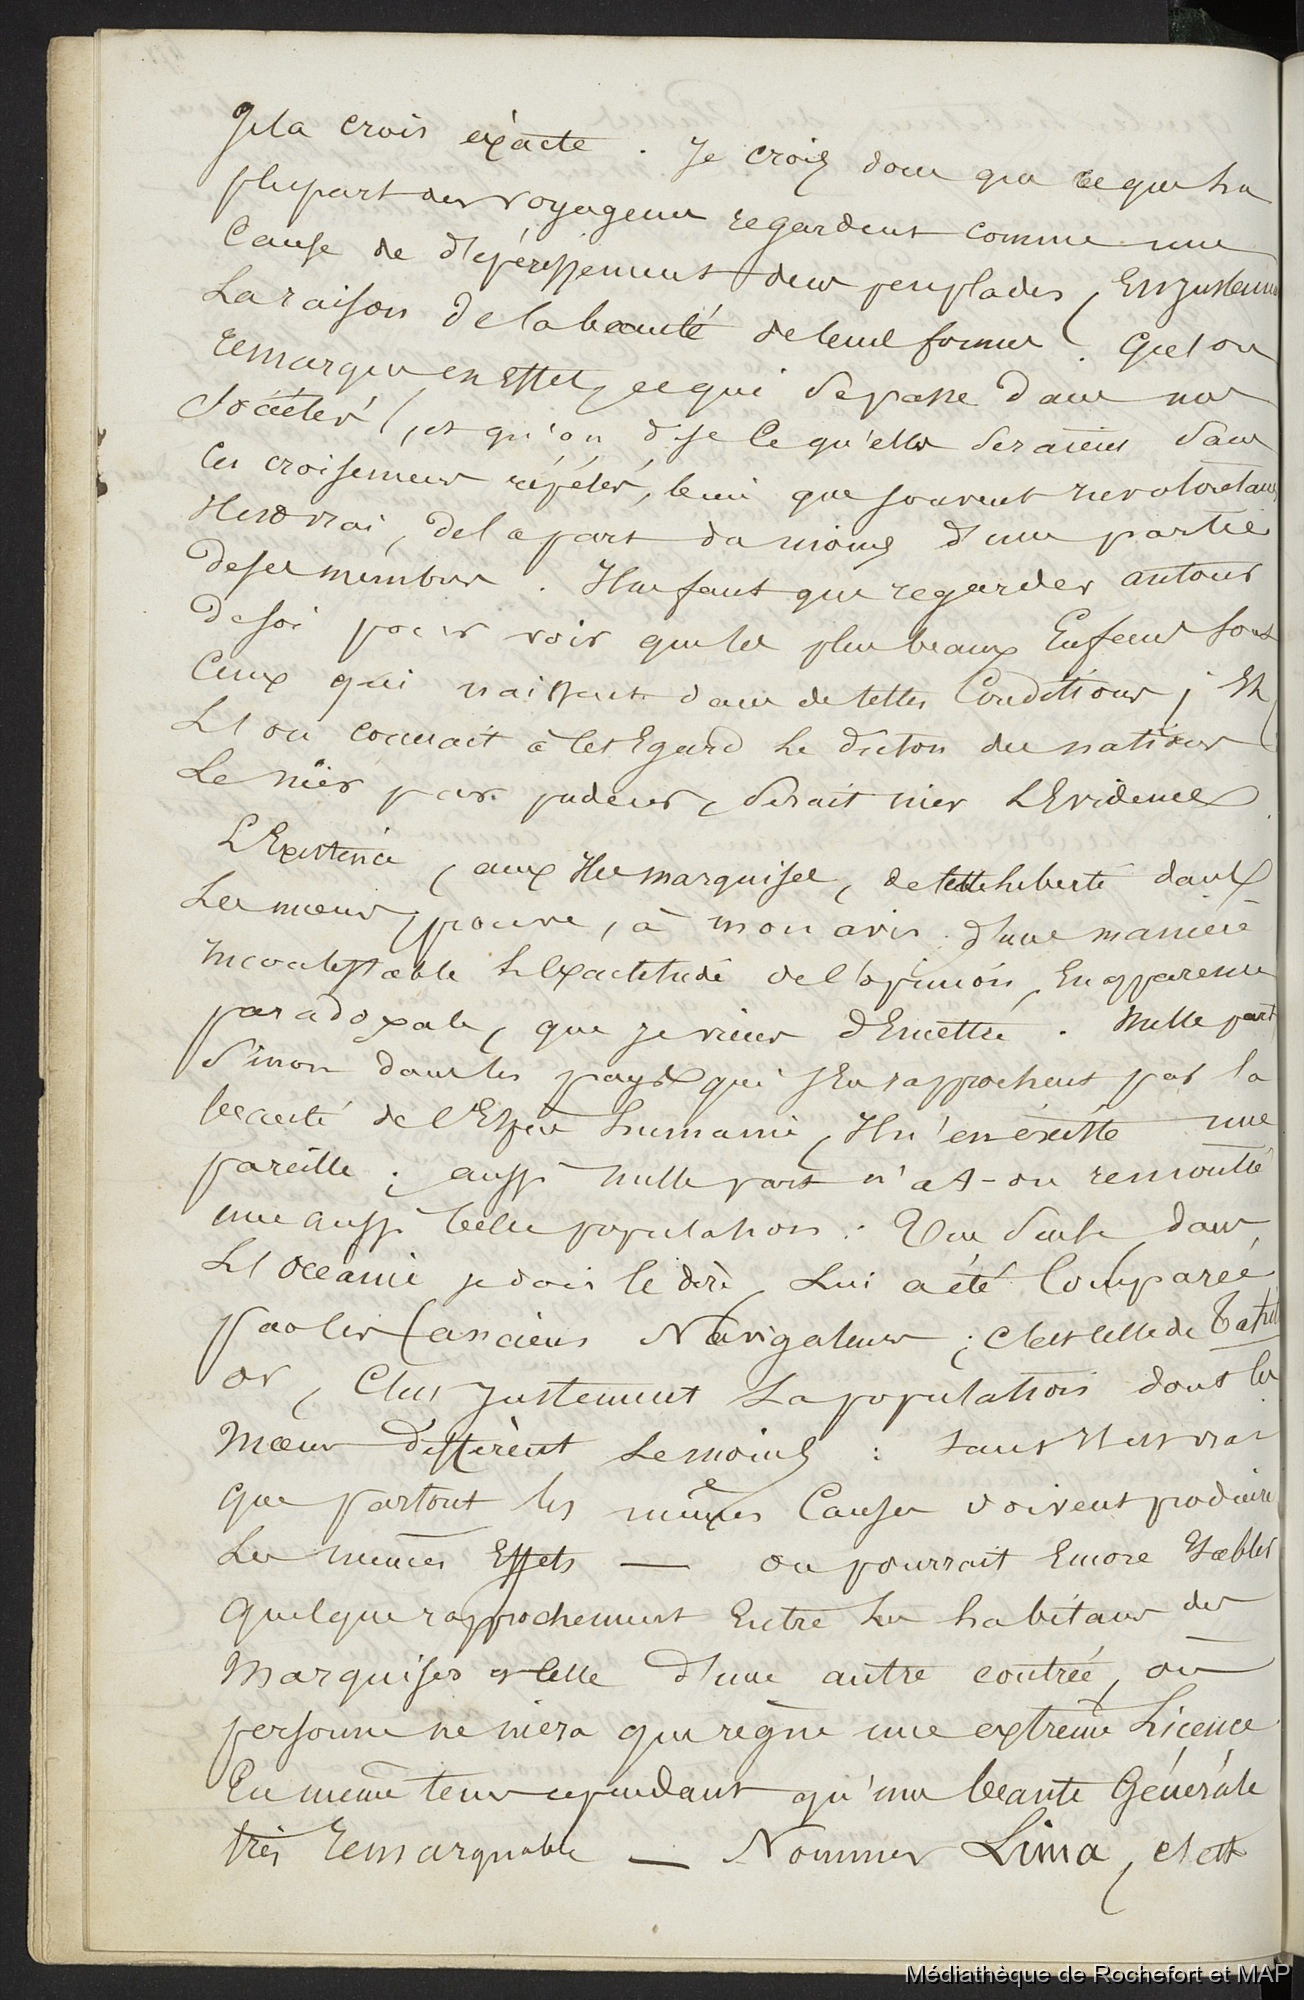 Je la crois exacte. Je crois donc que ce que la
plupart des voyageurs regardent comme une
Cause de dépérissement des peuplades, Est justement
La raison de la beauté de leurs formes. Que l'on
remarque en Effet, ce qui se passe dans nos
Sociétés, et qu'on dise ce qu'elles seraient sans
Ces croisements répétés, que souvent involontaires
Il est vrai, de la part du moins d'une partie
de ses membres. Il ne faut que regarder autour
de soi pour voir que les plus beaux Enfans sont
Ceux qui naissent dans de telles Conditions; Et
Si on connait à cet Egard le dicton des nations
Le nier par pudeur, serait nier L'Evidence.
L'Existence, aux Iles marquises, de cette liberté dans
Les moeurs, prouve, à mon avis d'une manière
incontestable L'Exactitude de l'opinion, En apparence
paradoxale, que je viens d'Emettre. Nulle part
Sinon dans les pays qui s'en rapprochent par la
beauté de l'Espèce humaine, Il n'en existe une
pareille; aussi nulle part n'a-t-on rencontré
une aussi belle population. Une seule dans
L'Océanie je dois le dire, Lui a été Comparée
par les anciens Navigateurs; C'est celle de Tahiti
or, C'est justement La population dont les
Mœurs diffèrent Le moins: tant il est vrai
Que partout les mêmes Causes doivent produire
Les mêmes Effets — on pourrait Encore Etablir
Quelque rapprochement Entre Les habitans des
Marquises et Celle d'une autre contrée, où
personne ne niera que règne une extrême Licence
En même tems cependant qu'une beauté Générale
très remarquable — Nommer Lima, c'est
Médiathèque de Rochefort et MAP